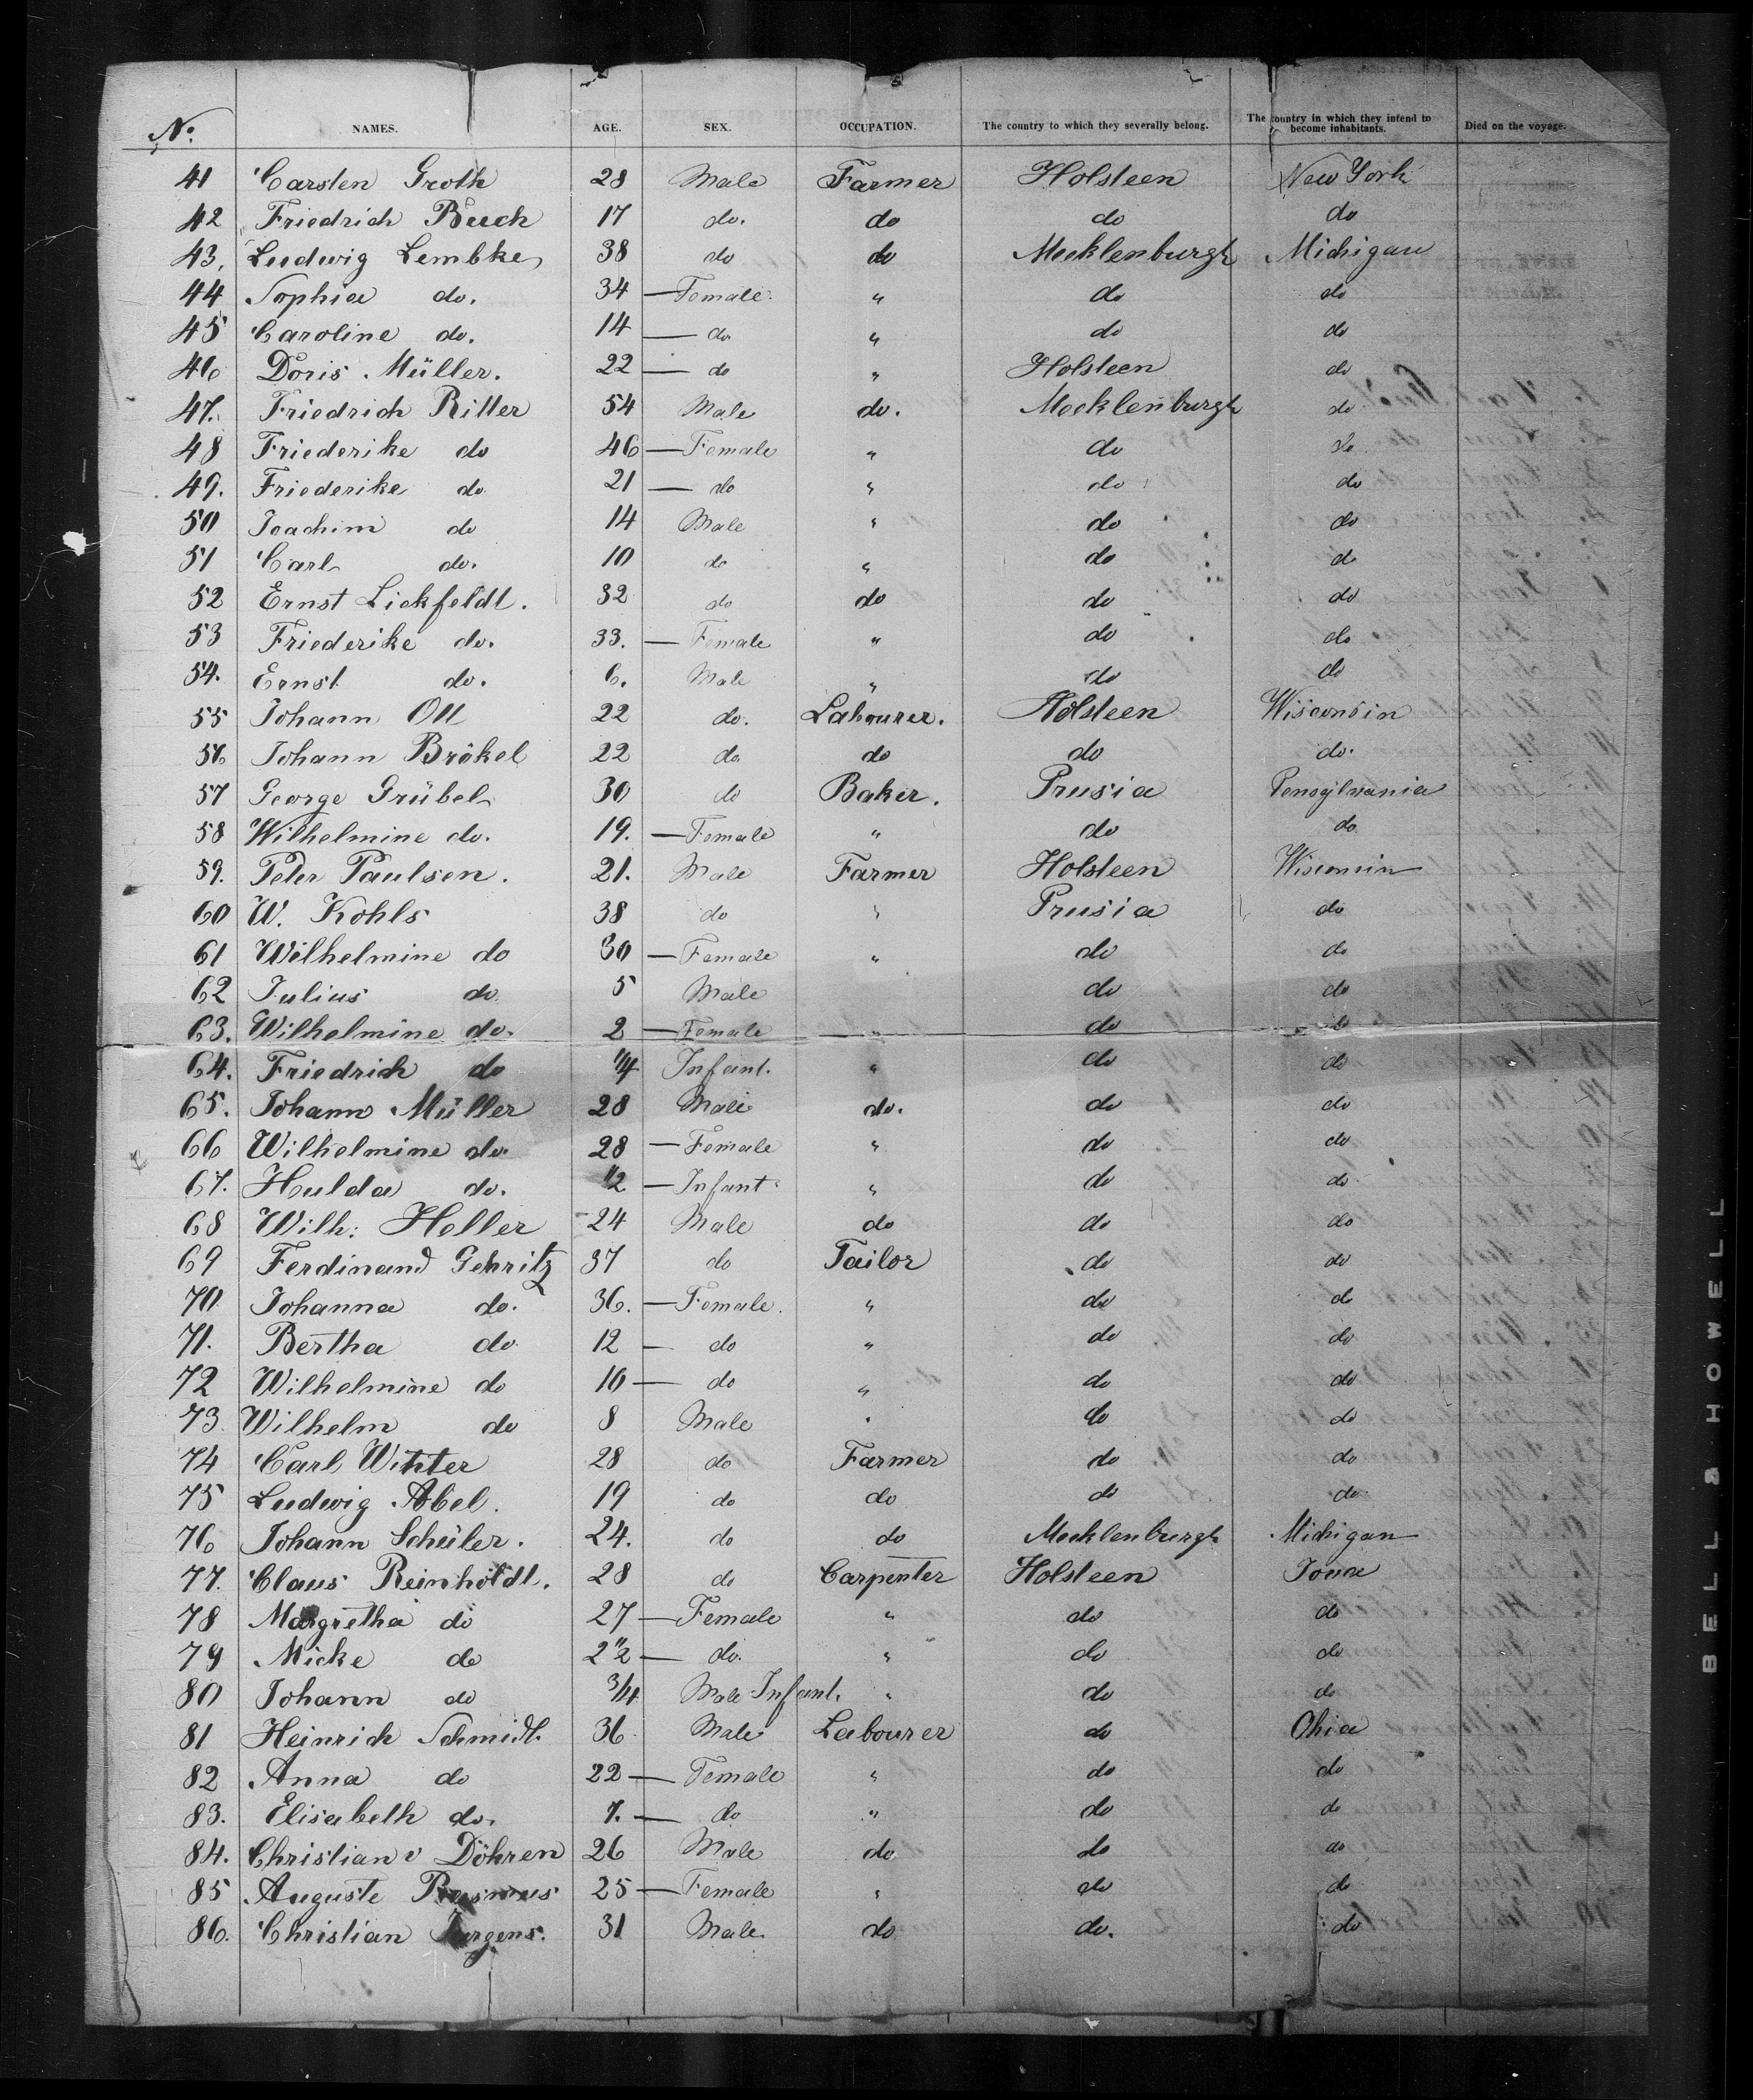 No. NAMES. AGE. SEX. OCCUPATION. The country to which they severally belong. The country in which they intend to become inhabitants. Died on the voyage.
41 Carsten Groth 28 Male Farmer Holsteen New York
42 Friedrich Buck 17 do. do do do
43, Ludwig Lembke 38 do do Mecklenburgh Michigan
44 Sophia do. 34 — Female " do do
45 Caroline do. 14 — do " do do
46 Doris Müller. 22 — do " Holsteen do
47. Friedrich Ritter 54 Male do. Mecklenburgh do
48 Friederike do 46 — Female " do do
49. Friederike do 21 — do " do do
50 Joachim do 14 Male " do do
51 Carl do. 10 do " do do
52 Ernst Lickfeldt. 32 do do do do
53 Friederike do. 33. — Female " do do
54. Ernst do. 6. Male " do do
55 Johann Ott 22 do. Labourer. Holsteen Wisconsin
56 Johann Brökel 22 do. do do do.
57 George Grübel 30 do Baker. Prusia Pensylvania
58 Wilhelmine do. 19. — Female " do do
59. Peter Paulsen. 21. Male Farmer Holsteen Wisconsin
60 W. Kohls 38 do " Prusia do
61 Wilhelmine do 30 — Female " do do
62 Julius do 5 Male do do
63. Wilhelmine do. 2 — Female " do do
64. Friedrich do 1/4 Infant. " do do
65. Johann Müller 28 Male do. do do
66 Wilhelmine do. 28 — Female " do do
67. Hulda do. 1/2 — Infant " do do
68 Wilh: Holler 24 Male do do do
69 Ferdinand Gehritz 37 do Tailor do do
70 Johanna do. 36. — Female. " do do
71. Bertha do 12 — do " do do
72 Wilhelmine do 10 — do " do do
73 Wilhelm do 8 Male " do do
74 Carl Witter 28 do Farmer do do
75 Ludwig Abel. 19 do do do do
76 Johann Schüler. 24. do do Mecklenburgh Michigan
77. Claus Reinholdt. 28 do Carpenter Holsteen Iowa
78 Margretha do 27 — Female " do do
79 Micke do 2 1/2 — do. " do do
80 Johann do 3/4 Male Infant. " do do
81 Heinrich Schmidt. 36 Male Labourer do Ohio
82 Anna do 22 — Female " do do
83. Elisabeth do. 7. — do " do do
84. Christian v Döhren 26 Male do do do
85 Auguste Rasmus 25 — Female " do do
86. Christian Jürgens. 31 Male. do do. do